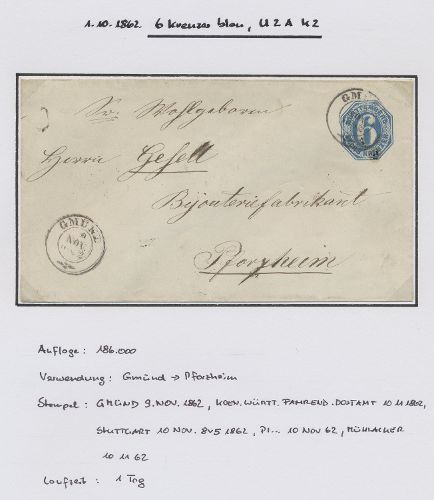 1.10.1862. 6 Kreuzer blau, U 2 A K2
GMÜ
6
Sr. Wohlgeboren
Herrn Gesell
Bijouteriefabrikant
Pforzheim
GMÜND
9
NOV
Auflage: 186.000
Verwendung: Gmünd → Pforzheim
Stempel: GMÜND 9. NOV. 1862, KOEN. WÜRTT. FAHREND. POSTAMT 10 11 1862,
STUTTGART 10 NOV. 8V5 1862, PI... 10 NOV 62, MÜHLACKER
10 11 62
Laufzeit: 1 Tag